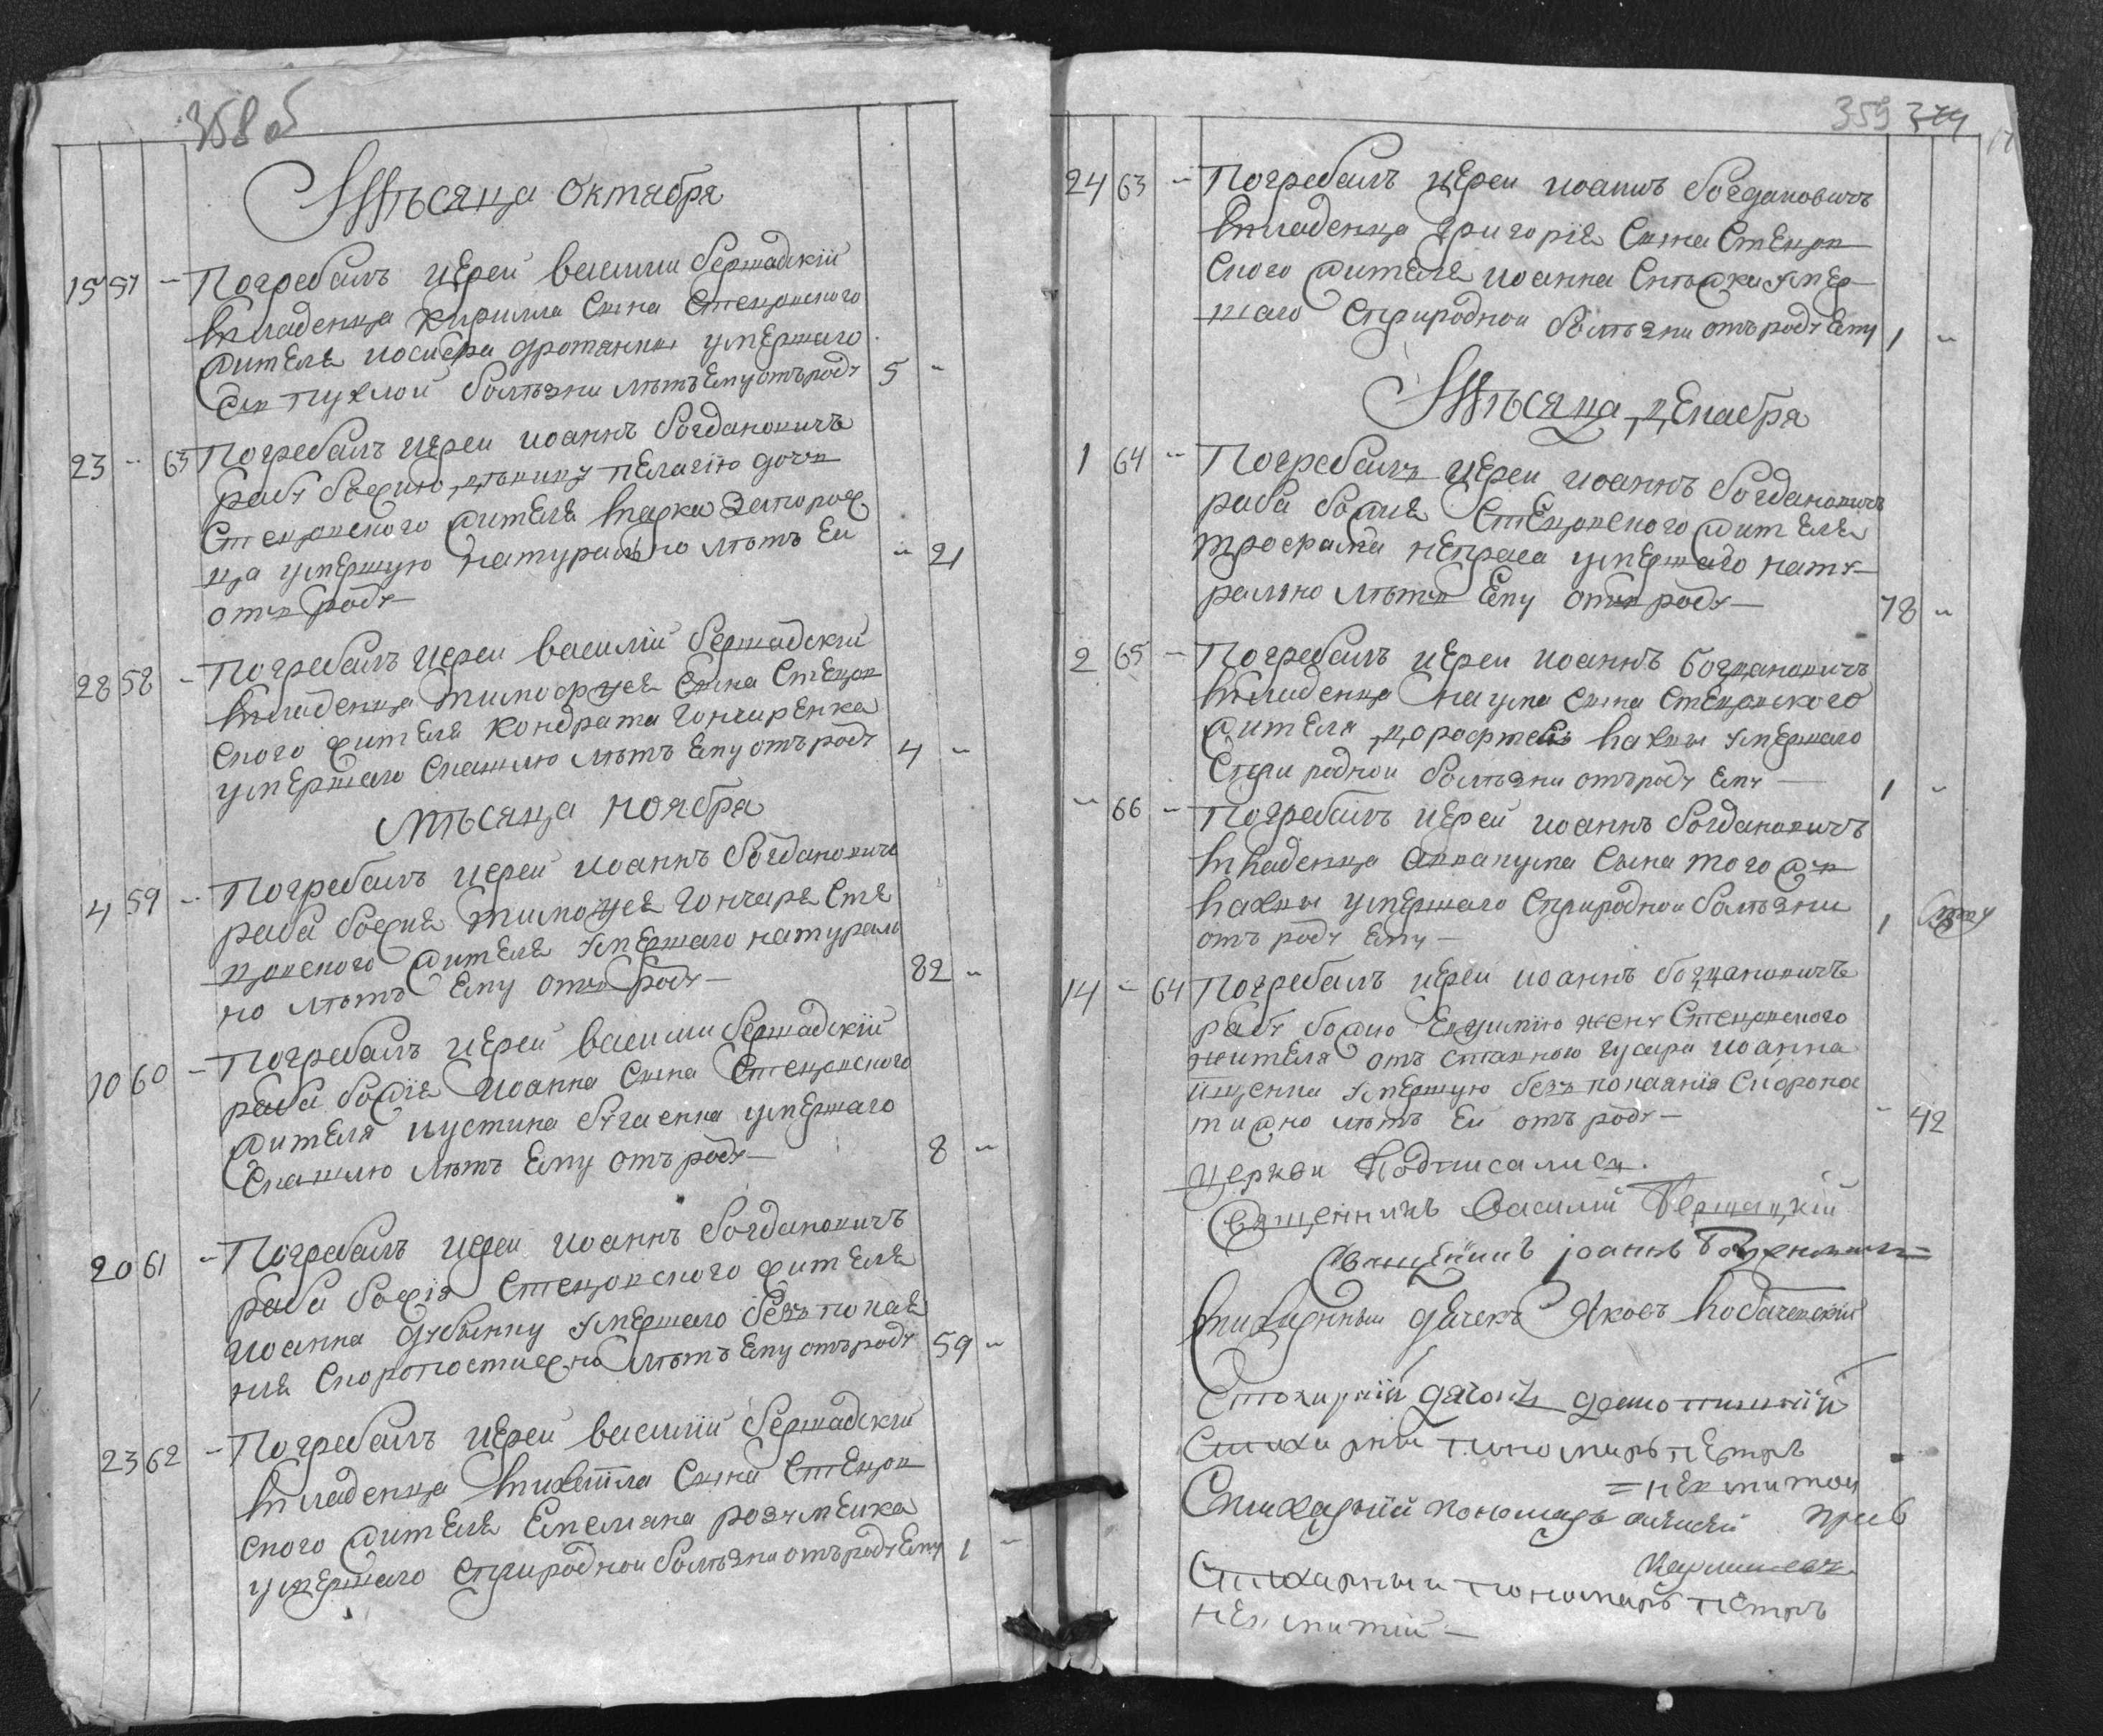 358 об
Мѣсяца Октября
15 57 Погребалъ иерей василий бершадскій
младенца кирилла сына стецовского
жителя иосифа дротянки умершаго
опухлой болѣзни лѣтъ ему отъ роду 5
23 63 Погребалъ иерей иоаннъ богдановичъ
рабу божию дѣвицу пелагію дочъ
стецовского жителя марка запорож
ца умершую натурално лѣтъ еи
отъ роду 21
28 58 Погребалъ иерей василий бершадскій
младенца тимофея сына стецов
ского жителя кондрата гончаренка
умершаго кашлю лѣтъ ему отъ роду 4
мѣсяца ноября
4 59 Погребалъ иерей иоаннъ богдановичъ
раба божия тимофея гончара сте
цовского жителя умершаго натурал
но лѣтъ ему отъ роду 82
10 60 Погребалъ иерей василий бершадскій
раба божія иоанна сына стецовского
жителя иустина бугаенка умершаго
кашлю лѣтъ ему отъ роду 8
20 61 Погребалъ иерей иоаннъ богдановичъ
раба божія стецовского жителя
иоанна дубынку умершаго безъ покая
ния скоропостижно лѣтъ ему отъ роду 59
23 62 Погребалъ иерей василий бершадскій
младенца михаила сына стецов
ского жителя емелиана розумейка
умершаго сприродной болѣзни отъ роду ему 1
359
24 63 Погребалъ иерей иоаннъ богдановичъ
младенца григорія сына стецов
ского жителя иоанна умер
шаго сприродной болѣзни отъ роду ему 1
Мѣсяца декабря
1 64 Погребалъ иерей иоаннъ богдановичъ
раба божия стецовского жителя
трофима непраса умершаго нату
рално лѣтъ ему отъ роду 78
2 65 Погребалъ иерей иоаннъ богдановичъ
младенца наума сына стецовского
жителя дорофтея умершаго
сприродной болѣзни отъ роду ему 1
66 Погребалъ иерей иоаннъ богдановичъ
младенца аввакума сына того жъ
умершаго сприродной болѣзни
отъ роду ему 1
14 64 Погребалъ иерей иоаннъ богдановичъ
рабу божию евфимию жену стецовского
жителя отъ ставного гусара иоанна
ищенка умершую безъ покаянія скоропос
тижно лѣтъ еи отъ роду 42
церкви подписались
Священникъ Василий Бершацкій
Священникъ іоаннъ Богдановичъ
Стихарный дячекъ Яковъ
Стихарній дячокъ
Стихарній пономаръ петръ
Стихарній пономаръ алексей
Стихарный пономаръ петръ